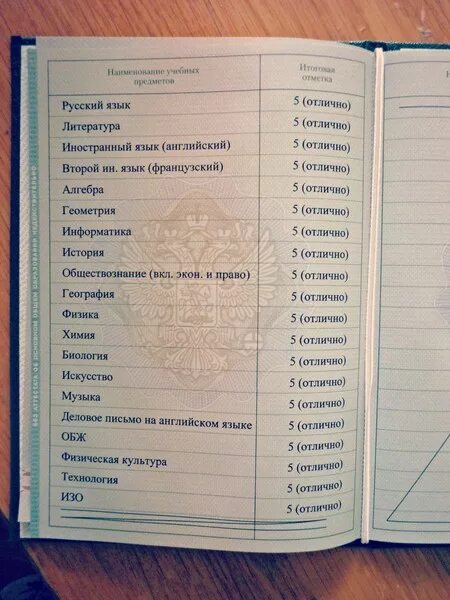 Наименование учебных
предметов
Итоговая
отметка
Русский язык 5 (отлично)
Литература 5 (отлично)
Иностранный язык (английский) 5 (отлично)
Второй ин. язык (французский) 5 (отлично)
Алгебра 5 (отлично)
Геометрия 5 (отлично)
Информатика 5 (отлично)
История 5 (отлично)
Обществознание (вкл. экон. и право) 5 (отлично)
География 5 (отлично)
Физика 5 (отлично)
Химия 5 (отлично)
Биология 5 (отлично)
Искусство 5 (отлично)
Музыка 5 (отлично)
Деловое письмо на английском языке 5 (отлично)
ОБЖ 5 (отлично)
Физическая культура 5 (отлично)
Технология 5 (отлично)
ИЗО 5 (отлично)
БЕЗ АТТЕСТАТА ОБ ОСНОВНОМ ОБЩЕМ ОБРАЗОВАНИИ НЕДЕЙСТВИТЕЛЬНО